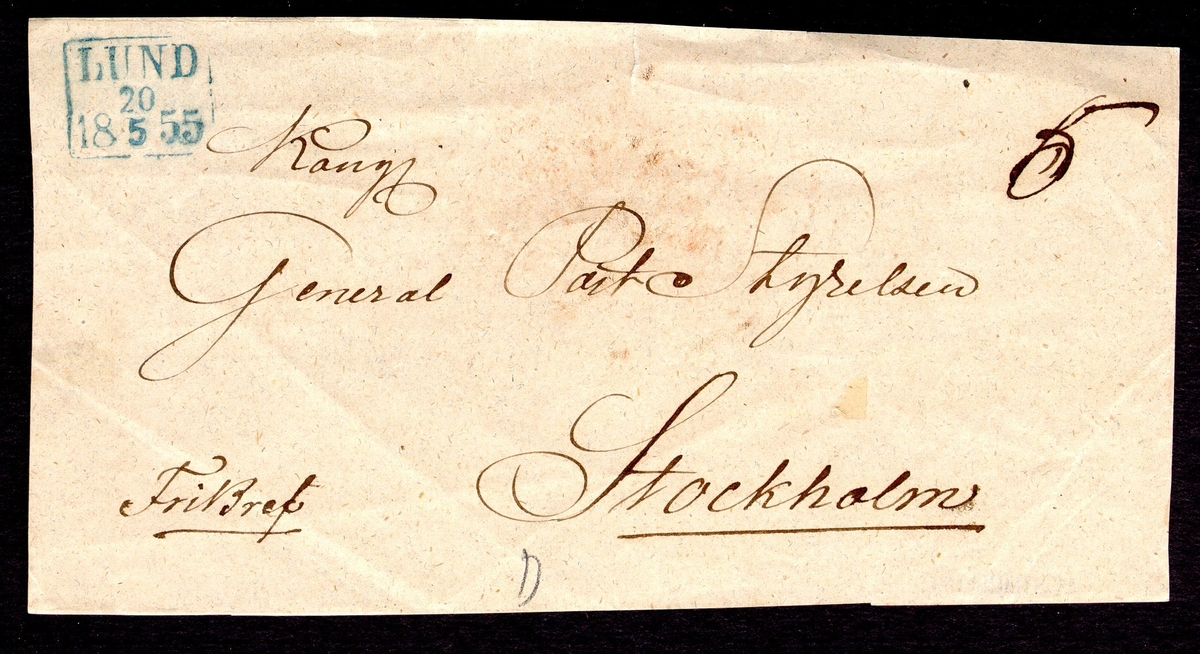 LUND
20
18 5 55
6
Kongl
General Post Styrelsen
Stockholm
FriBref
D